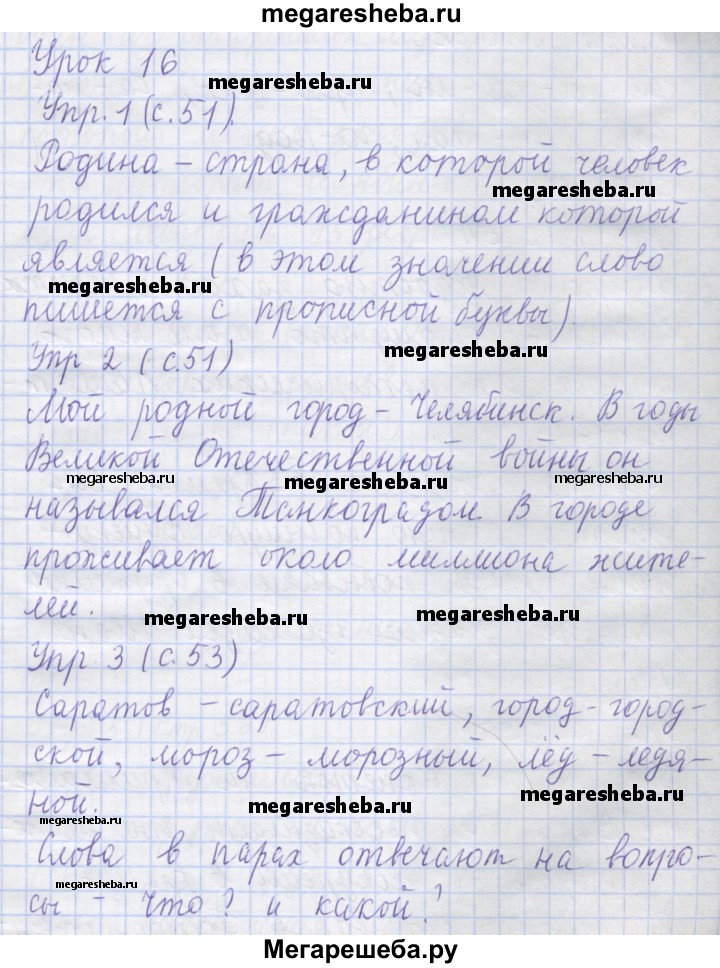 megaresheba.ru
Урок 16
megaresheba.ru
Упр. 1 (с. 51).
Родина - страна, в которой человек
megaresheba.ru
родился и гражданином которой
является (в этом значении слово
megaresheba.ru
пишется с прописной буквы).
Упр 2 (с. 51)
megaresheba.ru
Мой родной город - Челябинск. В годы
Великой Отечественной войны он
megaresheba.ru megaresheba.ru megaresheba.ru
назывался Танкоградом. В городе
проживает около миллиона жите-
лей.
megaresheba.ru megaresheba.ru
Упр 3 (с. 53)
Саратов - саратовский, город - город-
ской, мороз - морозный, лёд - ледя-
ной.
megaresheba.ru megaresheba.ru megaresheba.ru
Слова в парах отвечают на вопро-
megaresheba.ru megaresheba.ru
сы - что? и какой?
Мегарешеба.ру